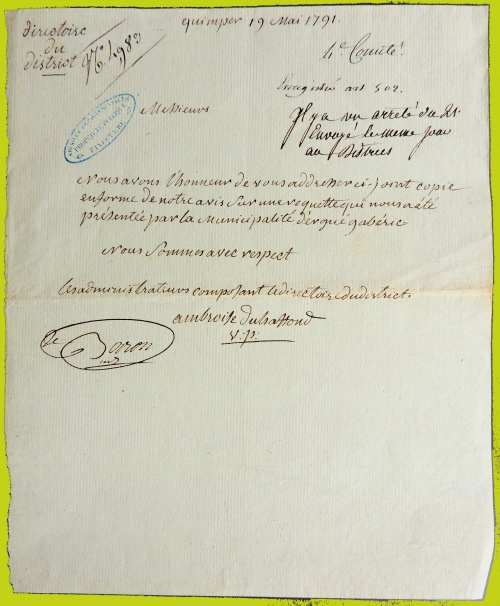 quimper 19 Mai 1791.
directoire
du
district
N° 4983
4e Comité.
Enregistré art 502.
Il y a un arreté du 21.
Envoyé le meme jour
au District
Messieurs
ARCHIVES
PROPRIÉTÉ PUBLIQUE
FINISTÈRE
Nous avons l'honneur de vous addresser ci-joint copie
en forme de notre avis sur une requette qui nous a été
présentée par la Municipalité d'ergué gabéric
Nous Sommes avec respect
les administrateurs composant le directoire du district.
ambroise
v.p.
Le Baron